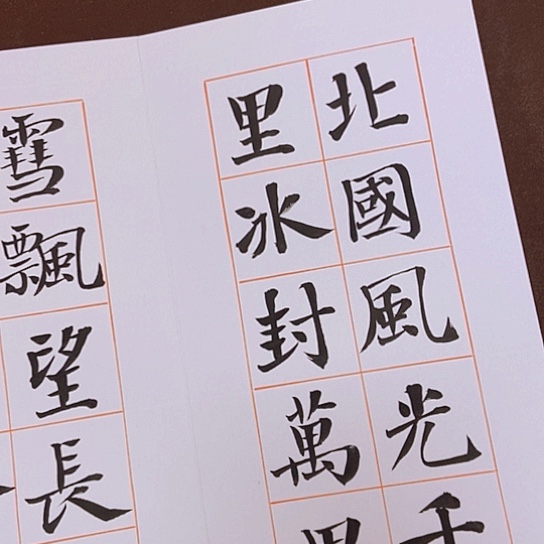 北國風光千
里冰封萬里
雪飄望長